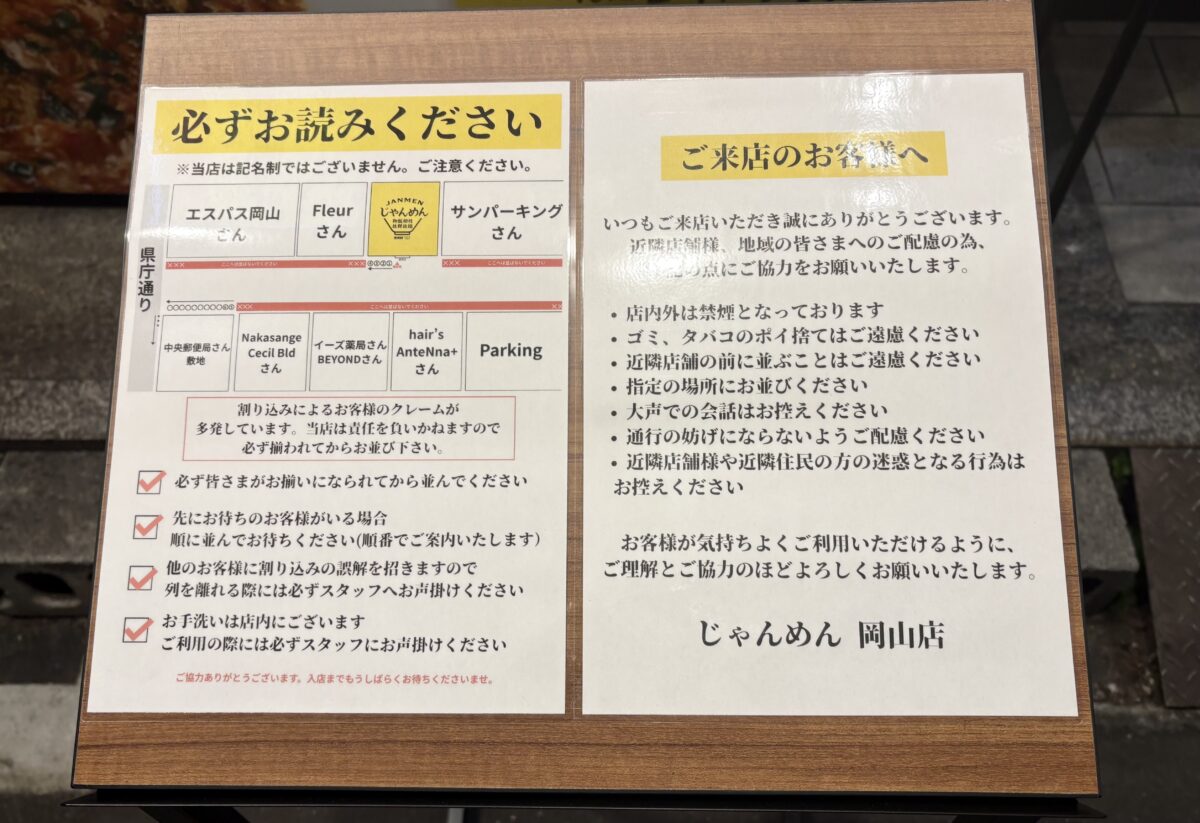 必ずお読みください
※当店は記名制ではございません。ご注意ください。
エスパス岡山
さん
Fleur
さん
JANMEN
じゃんめん
サンパーキング
さん
県庁通り
×××
ここへは並ばないでください
×××
④③②①
×××
ここへは並ばないでください
×××
ここへは並ばないでください
××
中央郵便局さん
敷地
Nakasange
Cecil Bld
さん
イーズ薬局さん
BEYONDさん
hair's
AnteNna+
さん
Parking
割り込みによるお客様のクレームが
多発しています。当店は責任を負いかねますので
必ず揃われてからお並び下さい。
必ず皆さまがお揃いになられてから並んでください
先にお待ちのお客様がいる場合
順に並んでお待ちください(順番でご案内いたします)
他のお客様に割り込みの誤解を招きますので
列を離れる際には必ずスタッフへお声掛けください
お手洗いは店内にございます
ご利用の際には必ずスタッフにお声掛けください
ご協力ありがとうございます。入店までもうしばらくお待ちくださいませ。
ご来店のお客様へ
いつもご来店いただき誠にありがとうございます。
近隣店舗様、地域の皆さまへのご配慮の為、
の点にご協力をお願いいたします。
・店内外は禁煙となっております
・ゴミ、タバコのポイ捨てはご遠慮ください
・近隣店舗の前に並ぶことはご遠慮ください
・指定の場所にお並びください
・大声での会話はお控えください
・通行の妨げにならないようご配慮ください
・近隣店舗様や近隣住民の方の迷惑となる行為は
お控えください
お客様が気持ちよくご利用いただけるように、
ご理解とご協力のほどよろしくお願いいたします。
じゃんめん 岡山店